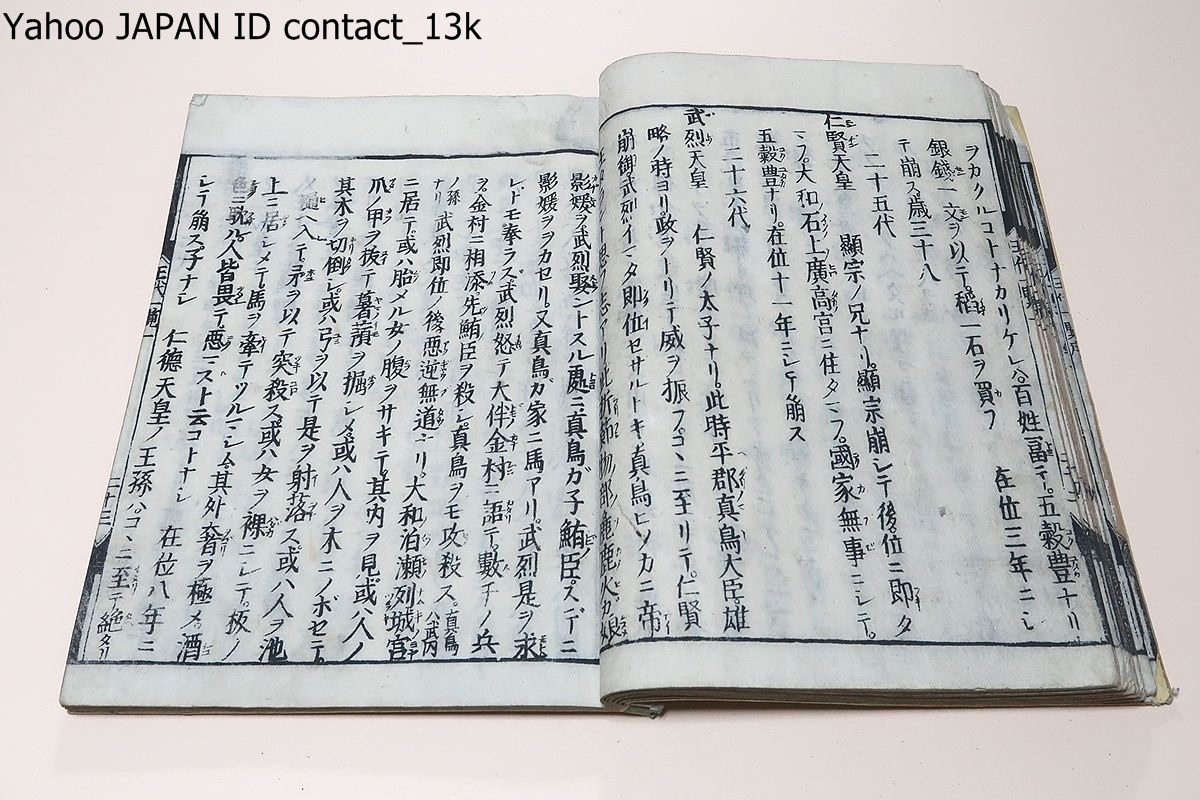 Yahoo JAPAN ID contact_13k
ヲカクルコトナカリケレハ百姓富テ五穀豊ナリ
銀錢一文ヲ以テ稻一石ヲ買フ 在位三年ニシ
テ崩ス歳三十八
二十五代
仁賢天皇 顯宗ノ兄ナリ顯宗崩シテ後位ニ即タ
マフ大和石上廣高宮ニ住タマフ國家無事ニシテ
五穀豊ナリ在位十一年ニシテ崩ス
二十六代
武烈天皇 仁賢ノ太子ナリ此時平郡真鳥大臣雄
略ノ時ヨリ政ヲトリテ威ヲ振フコヽニ至リテ仁賢
崩御武烈イマタ即位セサルトキ真鳥ヒソカニ帝
影媛ヲ武烈娶ントスル處ニ真鳥ガ子鮪臣スデニ
影媛ヲヲカセリ又真鳥ガ家ニ馬アリ武烈是ヲ求
レドモ奉ラズ武烈怒テ大伴金村ニ語テ數千ノ兵
ヲ金村ニ相添先鮪臣ヲ殺シ真鳥ヲモ攻殺ス真鳥ハ武内
ノ孫ナリ 武烈即位ノ後悪逆無道ナリ大和泊瀬列城宮
ニ居テ或ハ胎メル女ノ腹ヲサキテ其内ヲ見或ハ人ノ
爪ノ甲ヲ抜テ暑蕷ヲ掘シメ或ハ人ヲ木ニノボセテ
其木ヲ切倒シ或ハ弓ヲ以テ是ヲ射落ス或ハ人ヲ池
ノ樋ヘ入テ矛ヲ以テ突殺ス或ハ女ヲ裸ニシテ板ノ
上ニ居シメテ馬ヲ牽テツルマシム其外奢ヲ極メ酒
色ニ耽ル人皆畏テ悪マスト云コトナシ 在位八年ニ
シテ崩ス子ナシ 仁徳天皇ノ王孫コヽニ至テ絶タリ
王代一覧
二十三